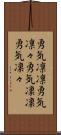 勇気凛凛勇気
凛々勇気凜凜
勇気凜々